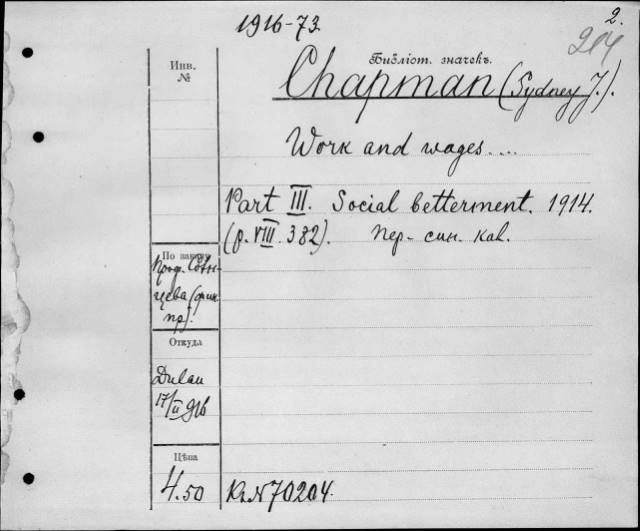 1916-73.
2.
204
Библіот. значекъ.
Инв.
№
Chapman (Sydney J.).
Work and wages....
Part III. Social betterment. 1914.
(p. VIII. 382). пер. син. кол.
По заказу
Проф.
(фин.
пр).
Откуда
Dulau
17/II 916
Цѣна
4.50
К. № 70204.